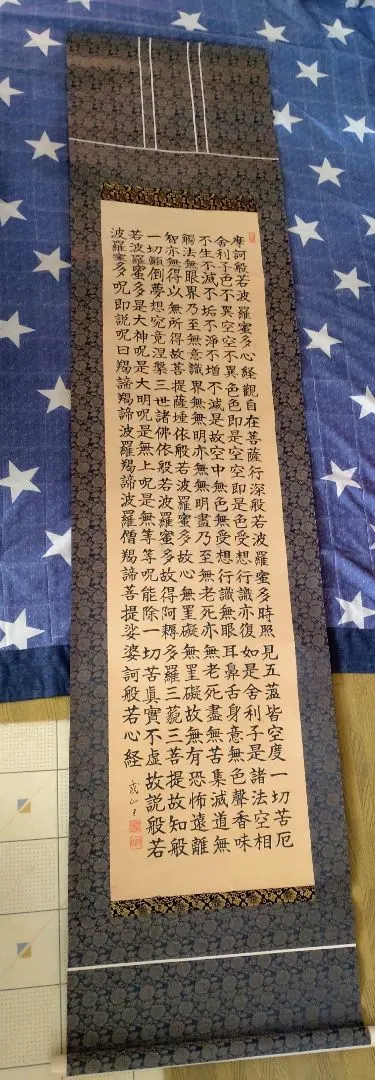 摩訶般若波羅蜜多心経觀自在菩薩行深般若波羅蜜多時照見五蘊皆空度一切苦厄
舍利子色不異空空不異色色即是空空即是色受想行識亦復如是舍利子是諸法空相
不生不滅不垢不淨不増不減是故空中無色無受想行識無眼耳鼻舌身意無色聲香味
觸法無眼界乃至無意識界無無明亦無無明盡乃至無老死亦無老死盡無苦集滅道無
智亦無得以無所得故菩提薩埵依般若波羅蜜多故心無罣礙無罣礙故無有恐怖遠離
一切顛倒夢想究竟涅槃三世諸佛依般若波羅蜜多故得阿耨多羅三藐三菩提故知般
若波羅蜜多是大神呪是大明呪是無上呪是無等等呪能除一切苦真實不虚故説般若
波羅蜜多呪即説呪曰羯諦羯諦波羅羯諦波羅僧羯諦菩提娑婆訶般若心経